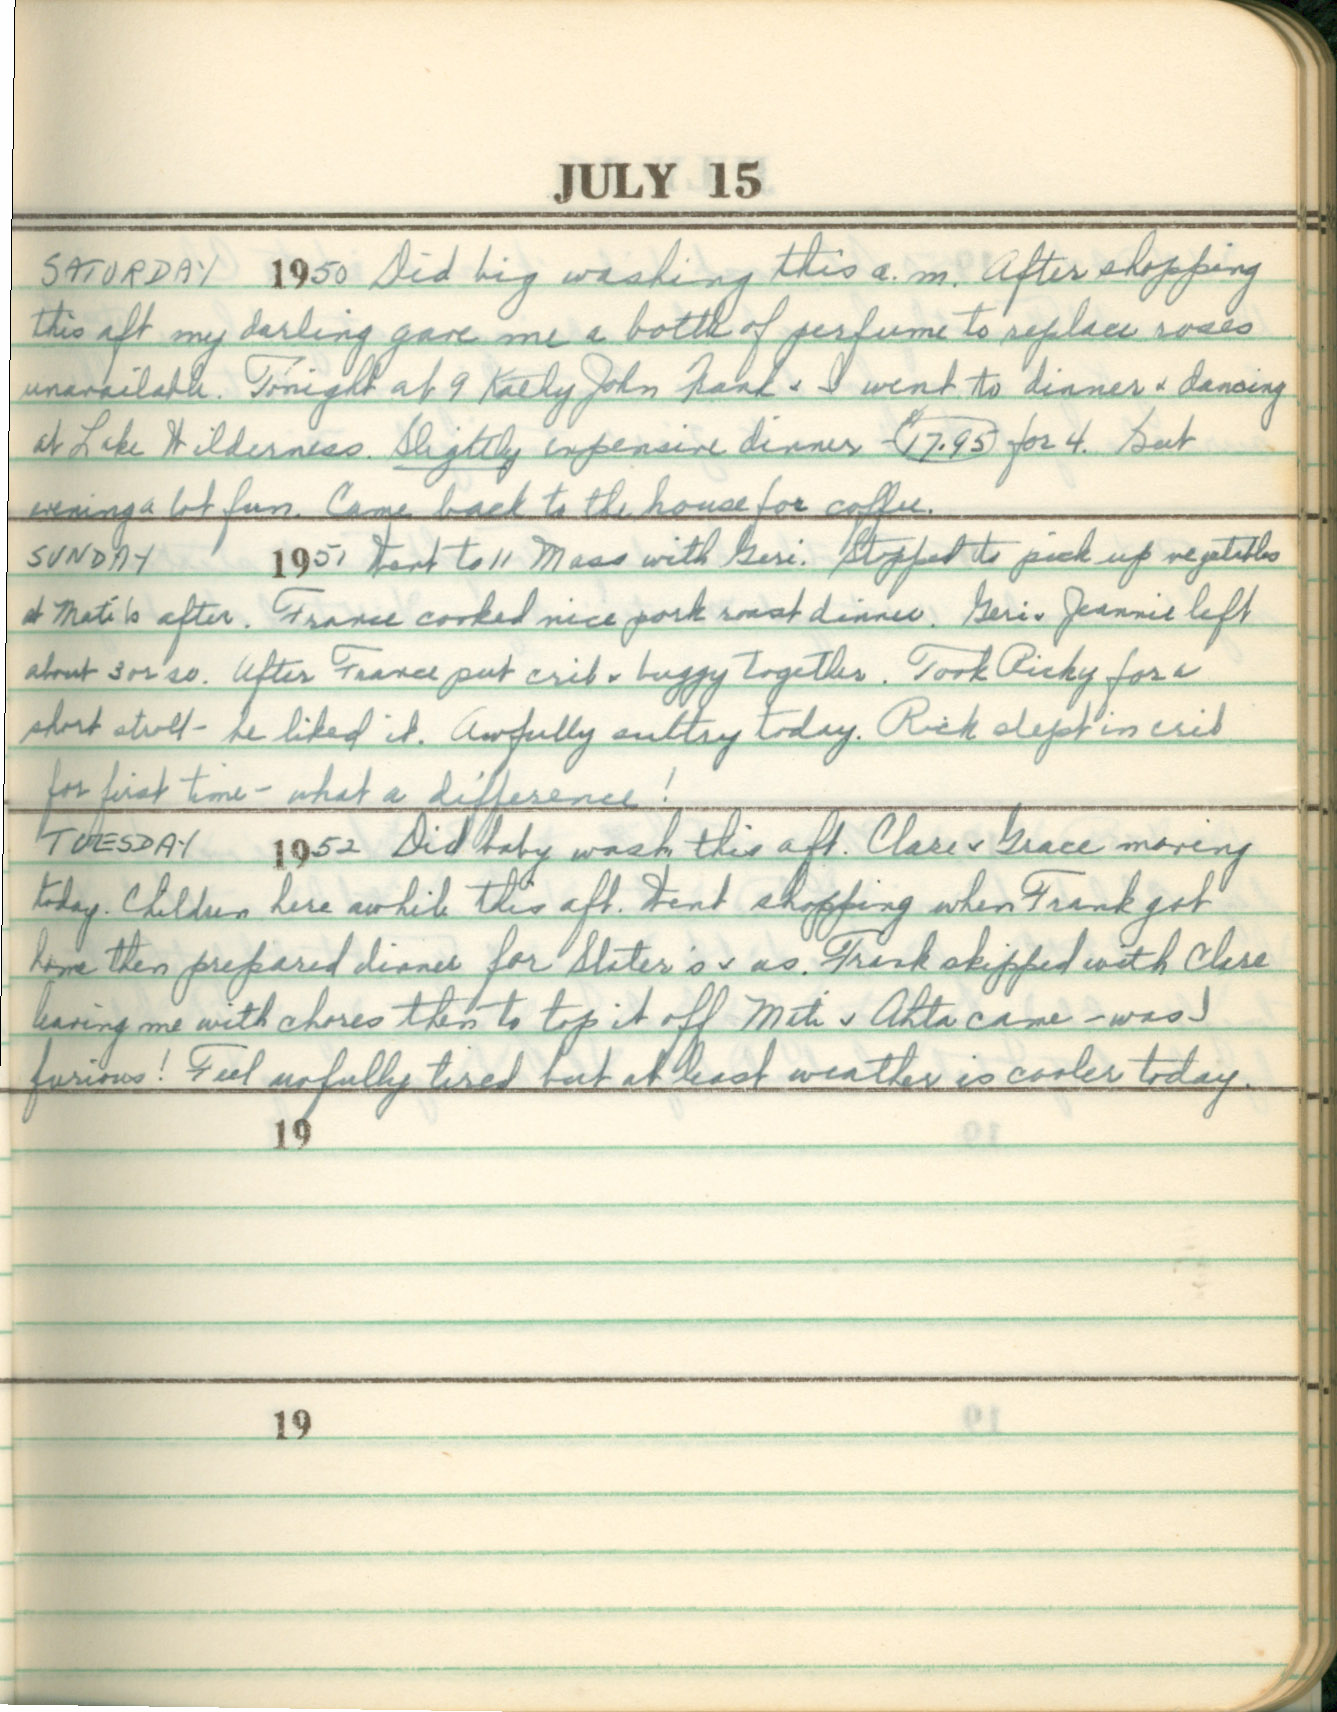 JULY 15
SATURDAY 1950 Did big washing this a.m. After shopping
this aft my darling gave me a bottle of perfume to replace roses
unavailable. Tonight at 9 Kathy John Frank & I went to dinner & dancing
at Lake Wilderness. Slightly expensive dinner - $17.95 for 4. But
evening a lot fun. Came back to the house for coffee.
SUNDAY 1951 Went to 11 Mass with Geri. Stopped to pick up vegetables
at Mati's after. France cooked nice pork roast dinner. Geri & Jeannie left
about 3 or so. After France put crib & buggy together. Took Ricky for a
short stroll - he liked it. Awfully sultry today. Rick slept in crib
for first time - what a difference!
TUESDAY 1952 Did baby wash this aft. Clare & Grace moving
today. Children here awhile this aft. Went shopping when Frank got
home then prepared dinner for Slater's & us. Frank skipped with Clare
leaving me with chores then to top it off Mati & Ahta came - was I
furious! Feel awfully tired but at least weather is cooler today.
19
19